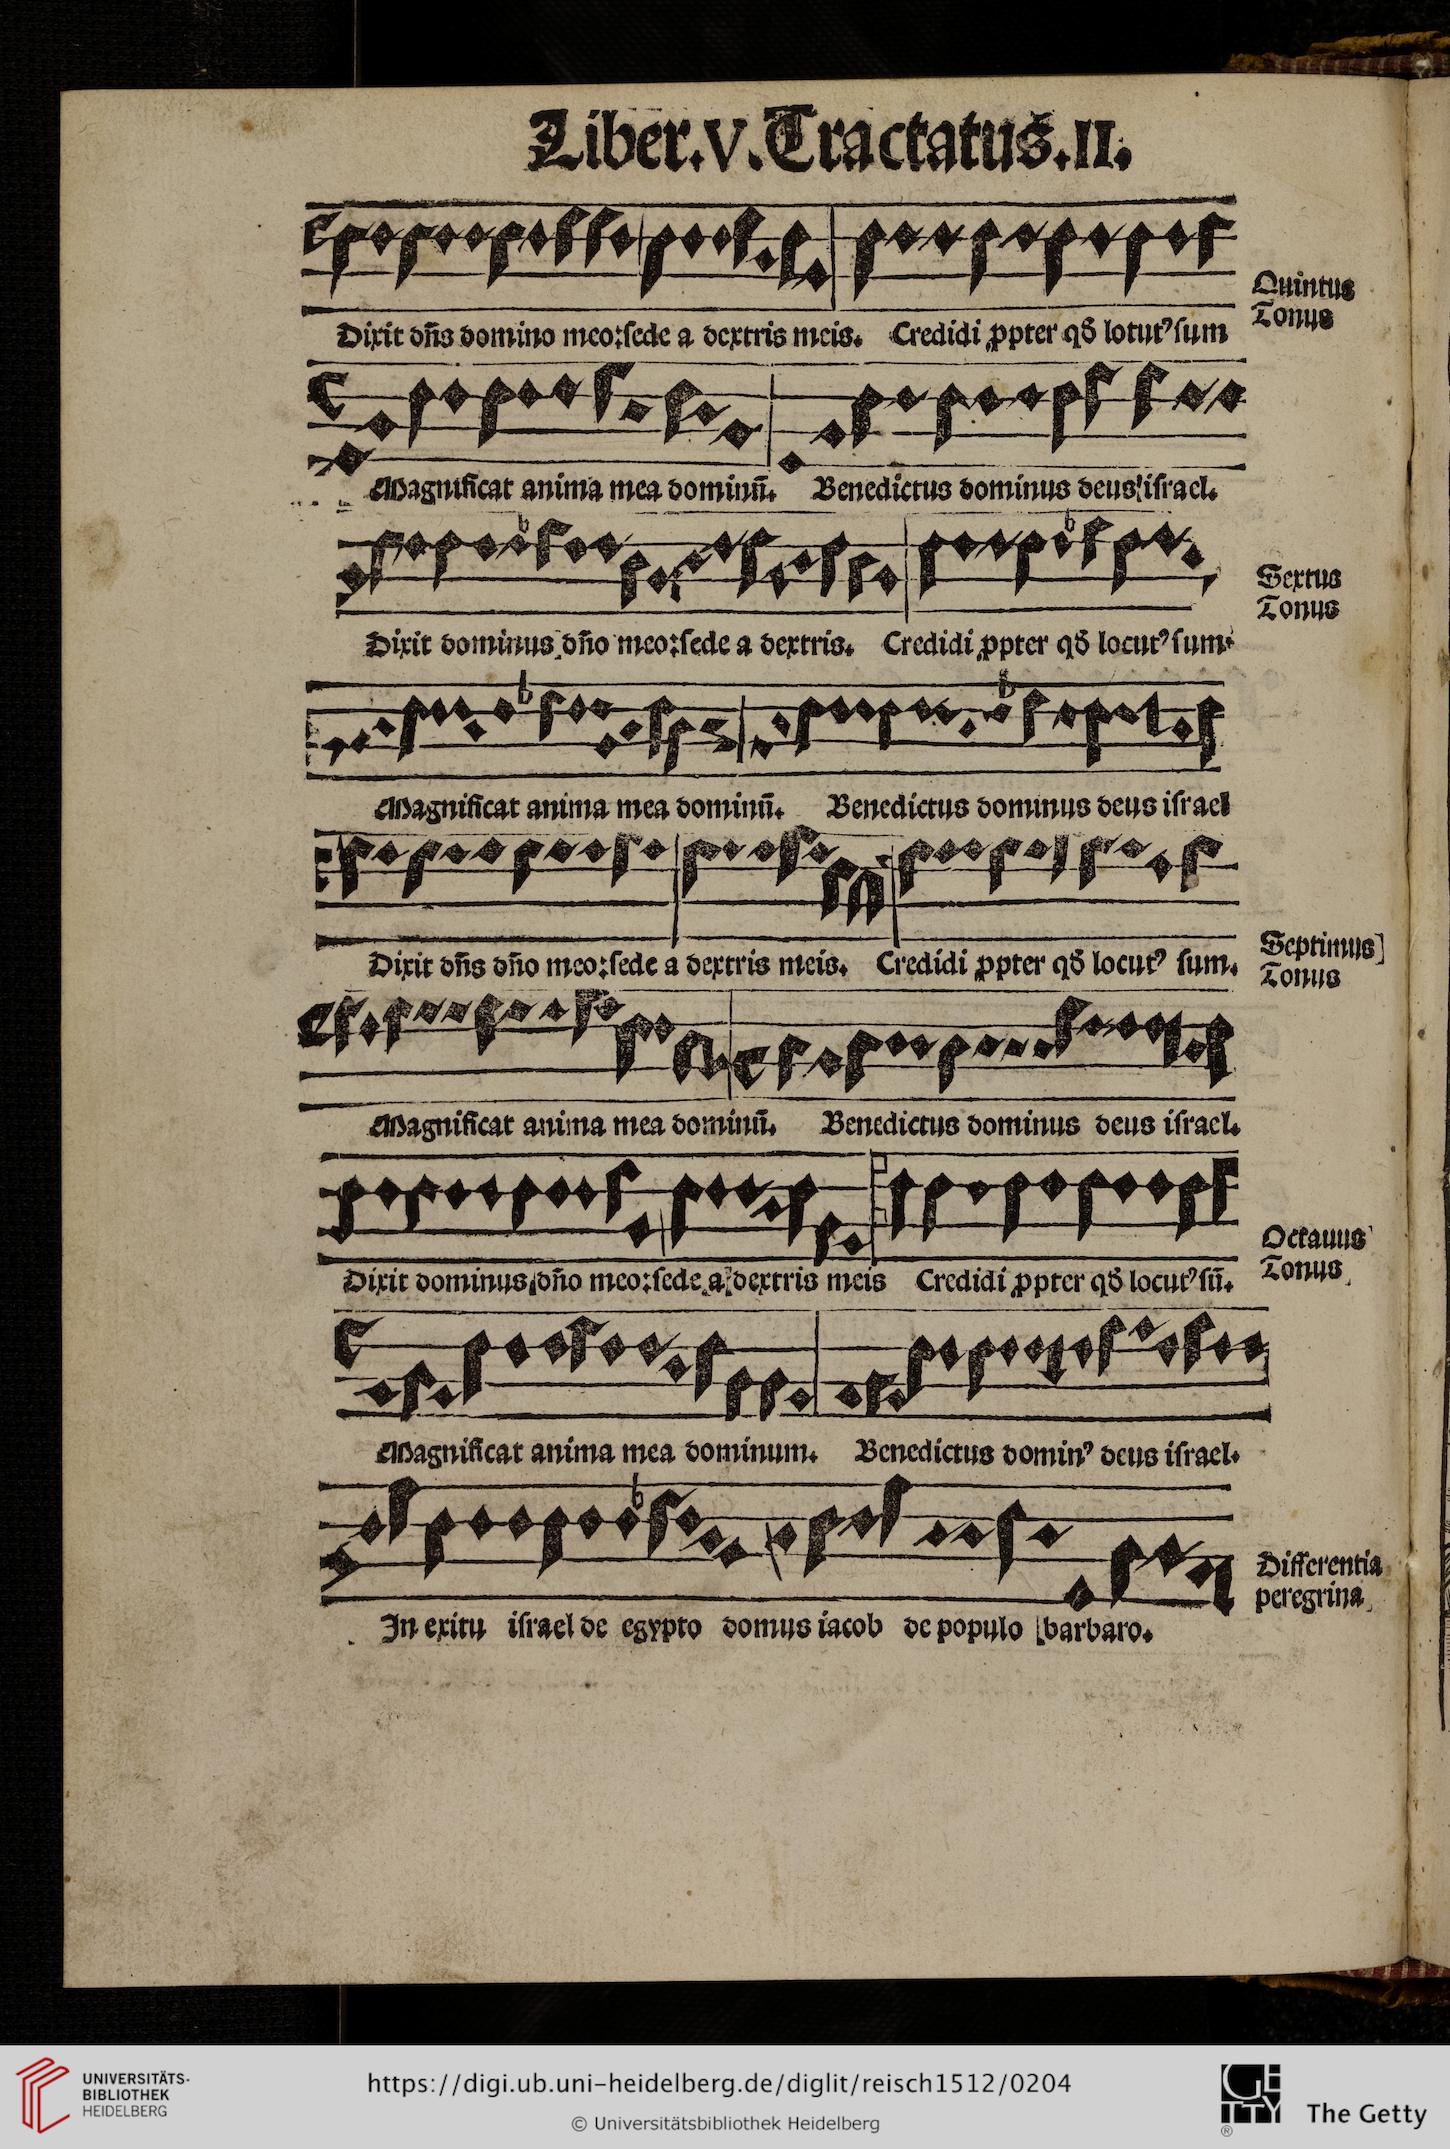 Liber.V.Tractatus.II.
Quintus
Tonus
Dixit dñs domino meo:sede a dextris meis. Credidi ꝓpter qď lotutꝰ sum
Magnificat anima mea dominũ. Benedictus dominus deus israel.
Sextus
Tonus
Dixit dominus dño meo:sede a dextris. Credidi ꝓpter qď locutꝰ sum.
Magnificat anima mea dominũ. Benedictus dominus deus israel
Dixit dñs dño meo:sede a dextris meis. Credidi ꝓpter qď locutꝰ sum.
Septimus
Tonus
Magnificat anima mea dominũ. Benedictus dominus deus israel.
Octauus
Tonus
Dixit dominus dño meo:sede a dextris meis Credidi ꝓpter qď locutꝰ sũ.
Magnificat anima mea dominum. Benedictus dominꝰ deus israel.
Differentia
peregrina
In exitu israel de egypto domus iacob de populo barbaro.
UNIVERSITÄTS-
BIBLIOTHEK
HEIDELBERG
https://digi.ub.uni-heidelberg.de/diglit/reisch1512/0204
© Universitätsbibliothek Heidelberg
GETTY
The Getty